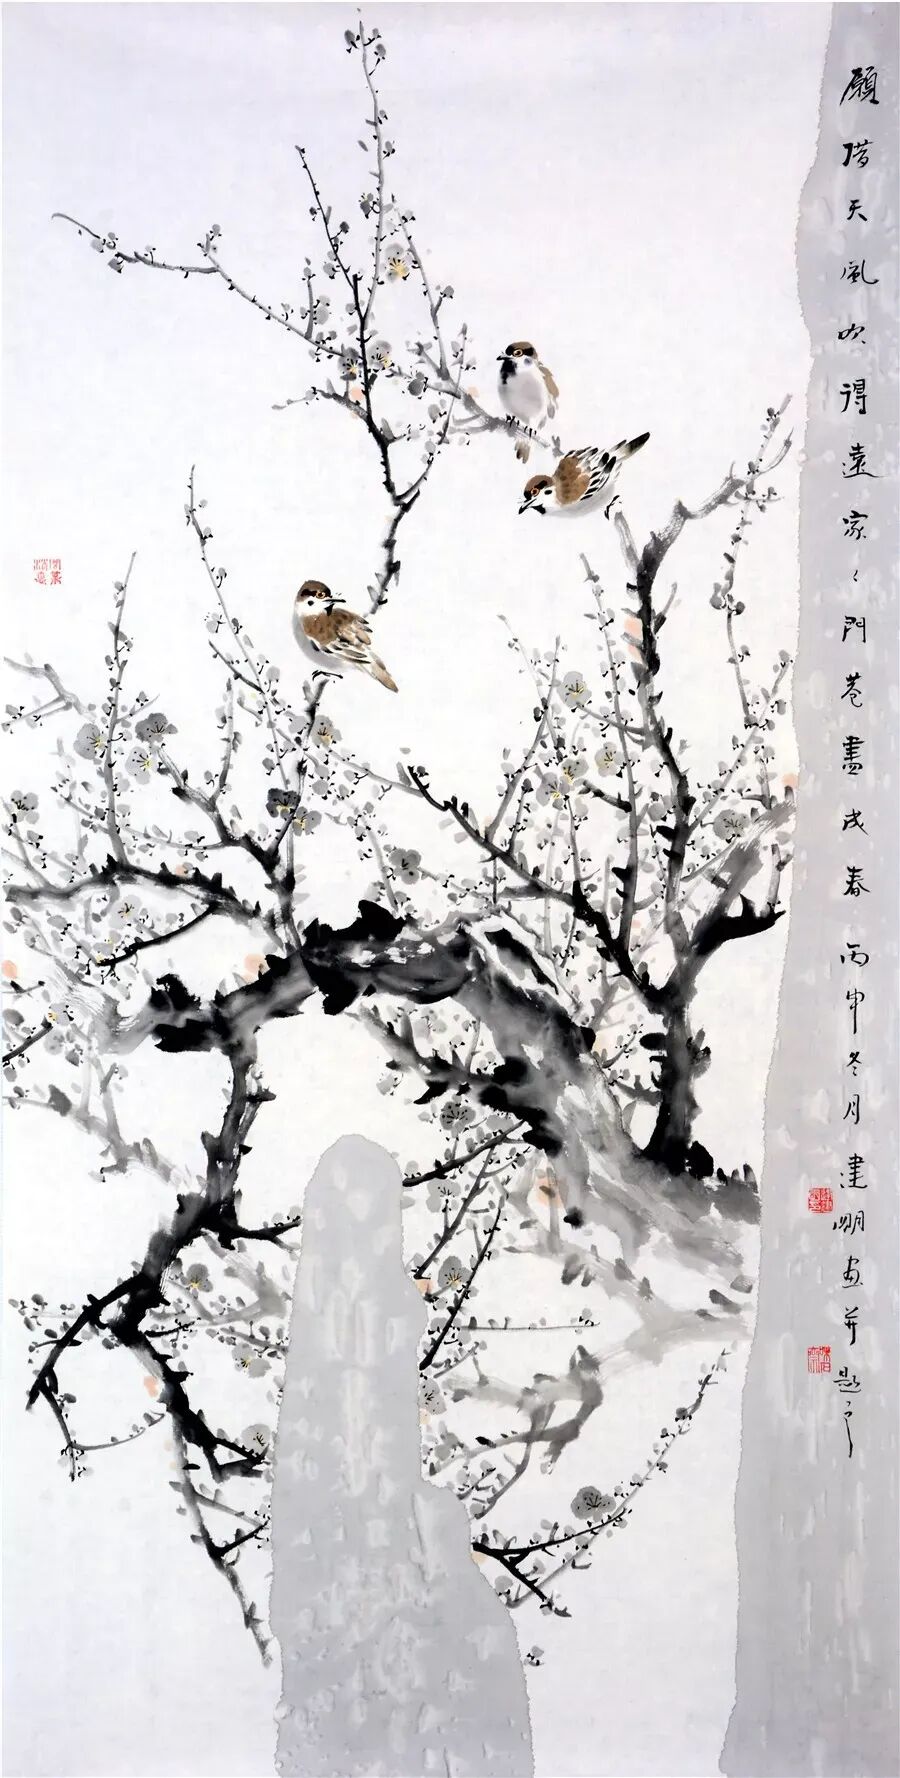 願借天風吹得遠家〻門巷盡成春 丙申冬月建明畫并題之